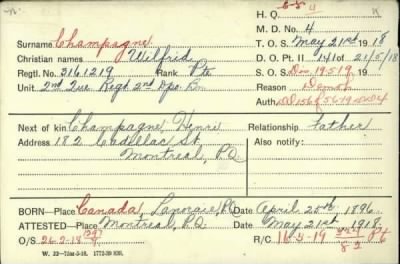 H. Q.
K
M. D. No. 4
Surname Champagne T. O. S. May 21st 1918
Christian names Wilfrid D. O. Pt. II 141 of 21/5/18
Regtl. No. 3161219 Rank Pte S. O. S. 19
Unit 2nd Que Regt 2nd Dpo Bn Reason Demob
Auth.
Next of kin Champagne, Henri Relationship Father
Address 182 Cadillac St, Also notify:
Montreal, P.Q.
BORN—Place Canada, Lanoraie, P.Q. Date April 20th 1896
ATTESTED—Place Montreal, P.Q. Date May 21st 1918
O/S 26-2-18 R/C 16-5-19